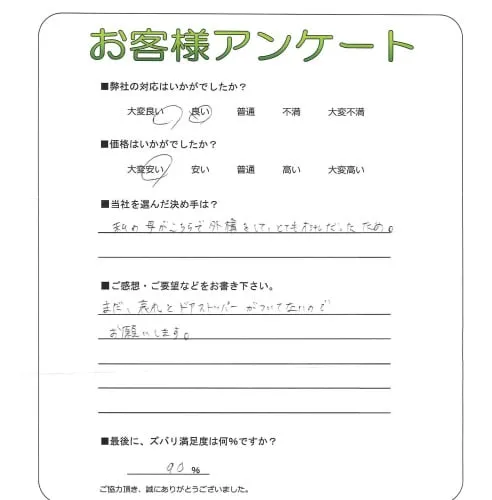 お客様アンケート
■弊社の対応はいかがでしたか？
大変良い 良い 普通 不満 大変不満
■価格はいかがでしたか？
大変安い 安い 普通 高い 大変高い
■当社を選んだ決め手は？
私の母がこちらで外構をして、とてもきれいだったため。
■ご感想・ご要望などをお書き下さい。
まだ、表札とドアストッパーがついてないので
お願いします。
■最後に、ズバリ満足度は何%ですか？
90 %
ご協力頂き、誠にありがとうございました。